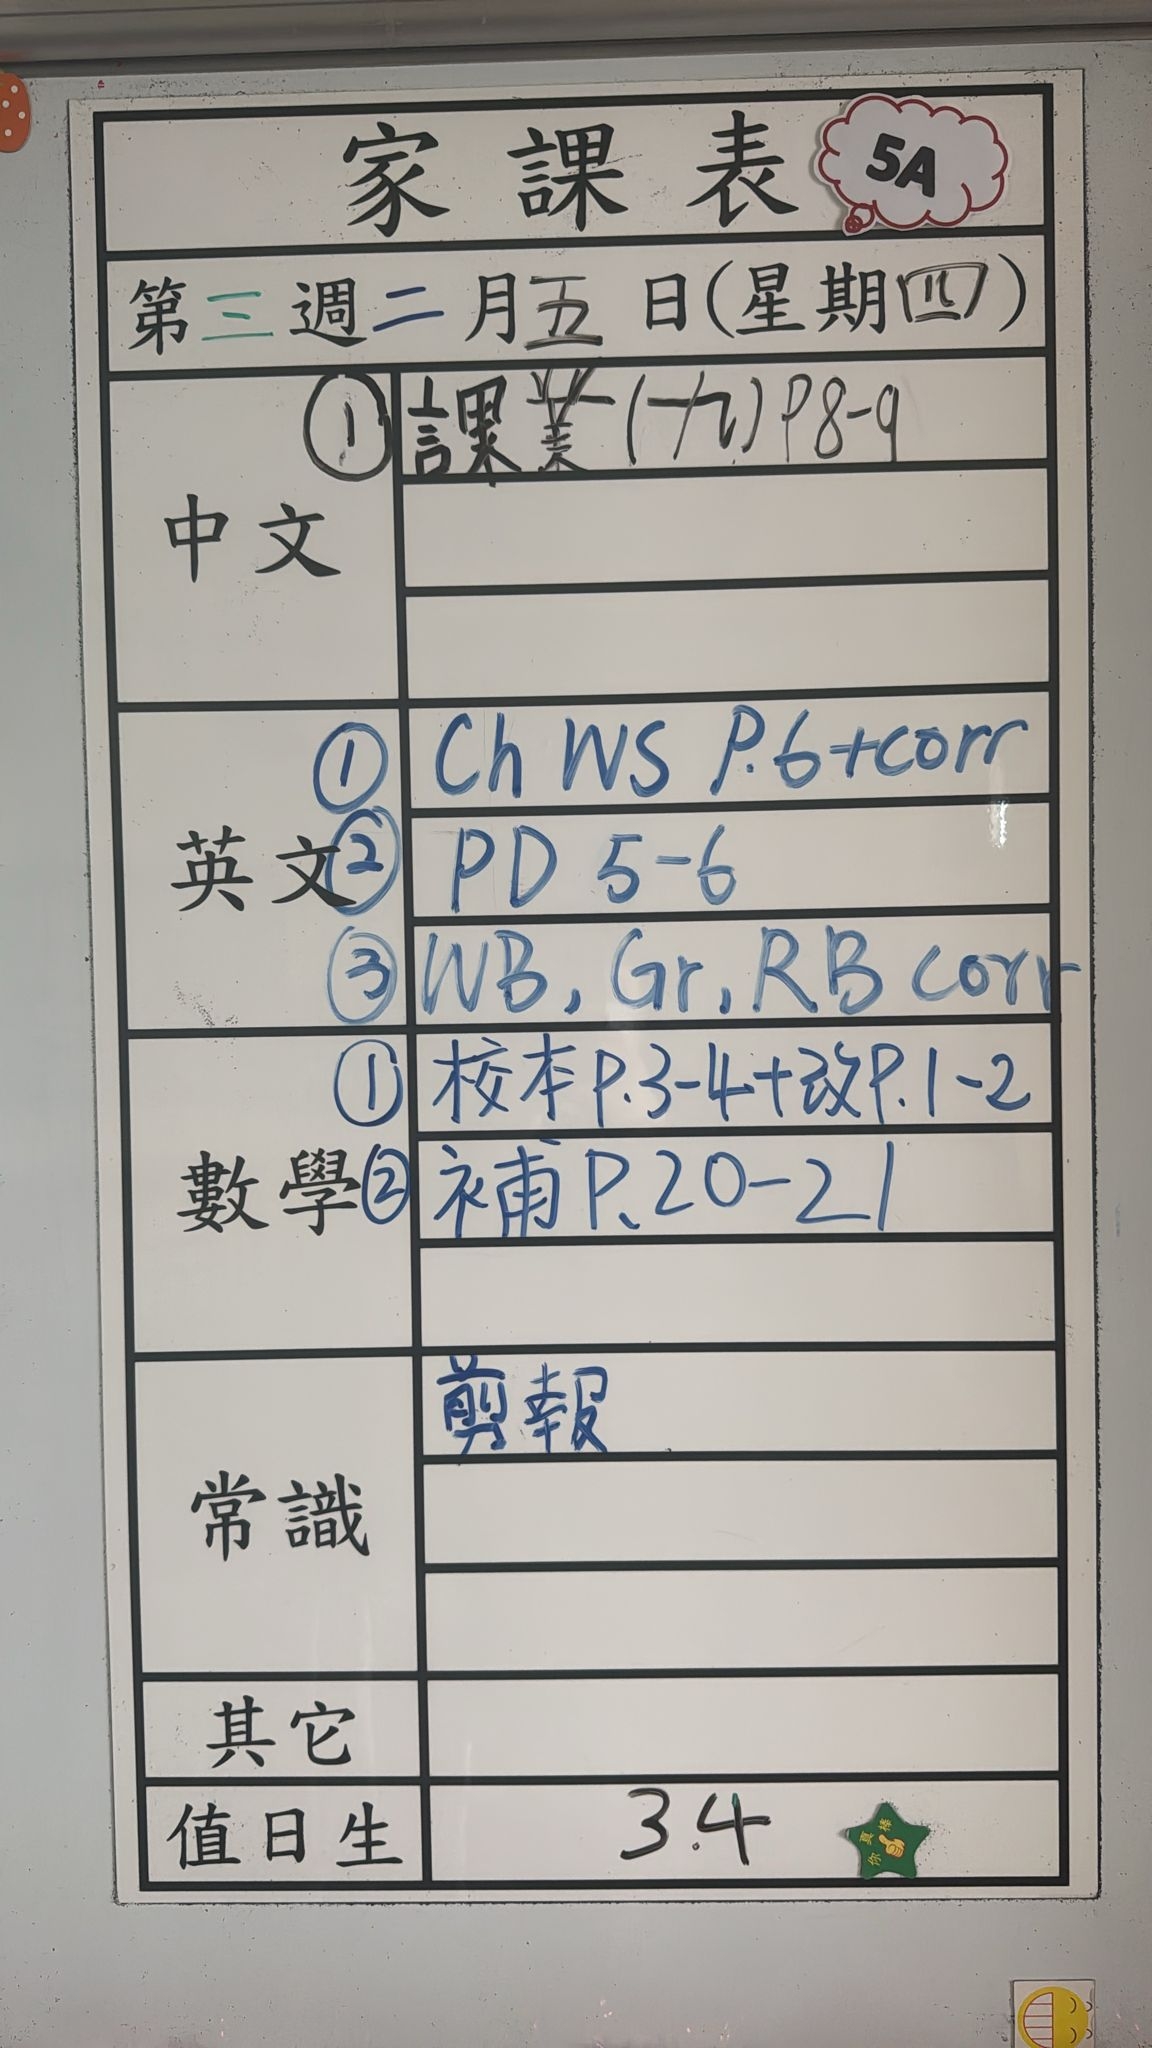 家課表 5A
第三週二月五日(星期四)
中文
① 課業(十九)P8-9
英文
① Ch WS P.6+corr
② PD 5-6
③ WB, Gr, RB corr
數學
① 校本P.3-4+改P.1-2
② 補P.20-21
常識
剪報
其它
值日生 3.4
你真棒